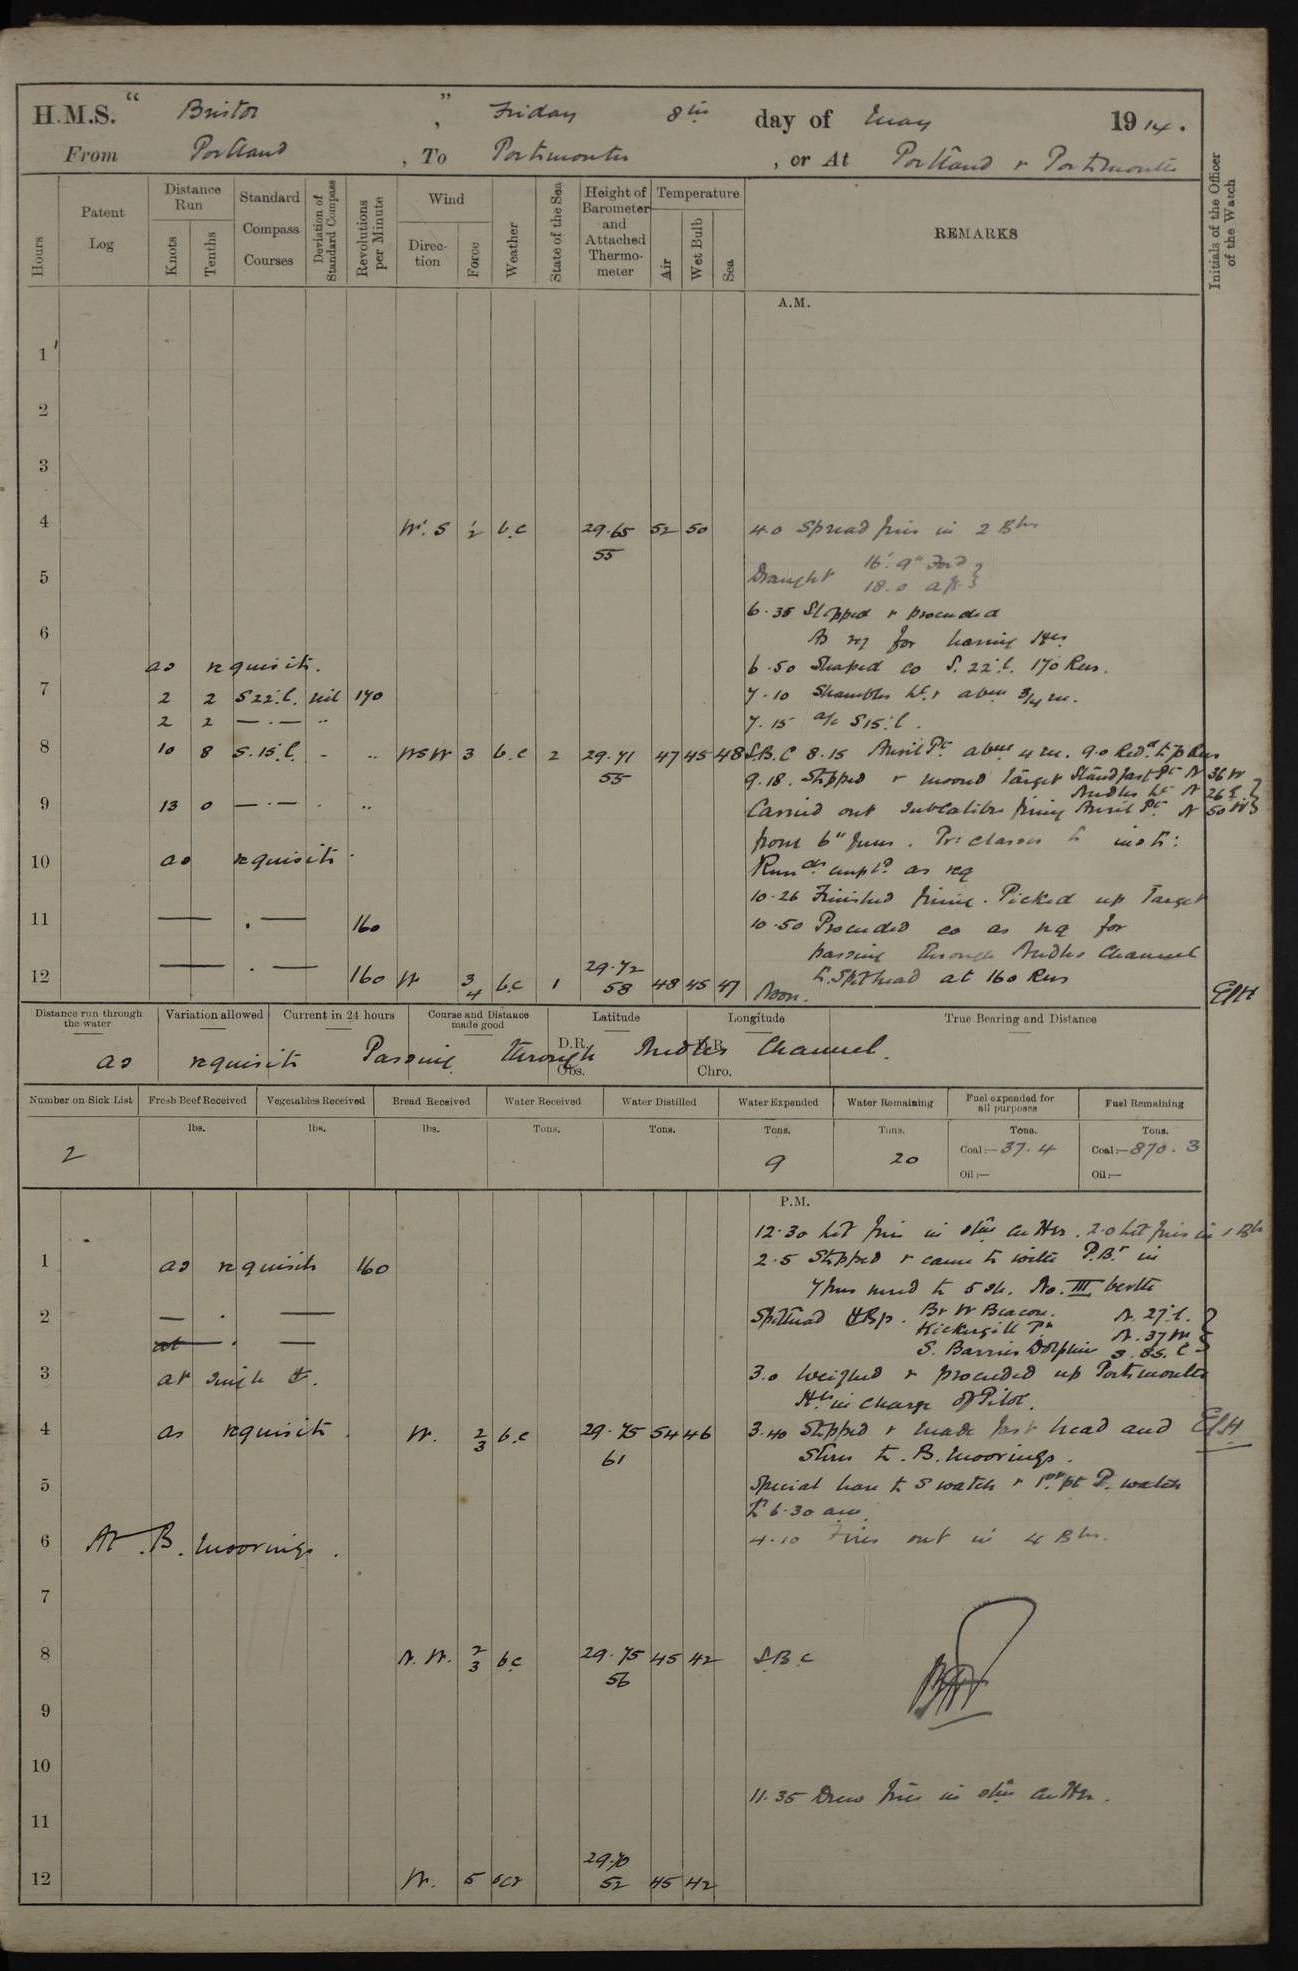 H.M.S. “ Bristol ” , Friday 8th day of May 1914.
From Portland , To Portsmouth , or At Portland & Portsmouth
Hours
Patent Log
Distance Run
Knots
Tenths
Standard Compass Courses
Deviation of Standard Compass
Revolutions per Minute
Wind
Direction
Force
Weather
State of the Sea
Height of Barometer and Attached Thermometer
Temperature
Air
Wet Bulb
Sea
REMARKS
Initials of the Officer of the Watch
A.M.
1
2
3
4 W.S 1/2 b.c 29.65 52 50 4.0 Spread fires in 2 Blrs
55
5 Draught 16'.9" Ford
18.0 aft
6.35 Slipped & proceeded
6 As req for
as requisite. 6.50 Shaped co S.22.E. 170 Revs.
7 2 2 S22.E. nil 170 7.10 Shambles Lt. V abeam 3/4 m.
2 2 — . — " 7.15 a/c S15.E.
8 10 8 S.15.E. - " WSW 3 b.c 2 29.71 47 45 48 S.B.C 8.15 Anvil Pt abeam 4 m. 9.0 Redd to Revs
55 9.18. Stopped & moored Target N 36 W
Needles Lt N 26 E
9 13 0 — . — . " Carried out subcalibre firing Anvil Pt N 50 W
from 6" guns. classes
10 as requisite. Run as req
10.26 Finished firing. Picked up Target
11 — . — 160 10.50 Proceeded co as req for
passing through Needles Channel
12 — . — 160 W 3/4 b.c 1 29.72 48 45 47 to Spithead at 160 Revs
58 Noon. EPH
Distance run through the water
Variation allowed
Current in 24 hours
Course and Distance made good
Latitude
Longitude
True Bearing and Distance
D.R. D.R.
as requisite Passing through Needles Channel.
Obs. Chro.
Number on Sick List
Fresh Beef Received
Vegetables Received
Bread Received
Water Received
Water Distilled
Water Expended
Water Remaining
Fuel expended for all purposes
Fuel Remaining
lbs. lbs. lbs. Tons. Tons. Tons. Tons. Tons. Tons.
2 9 20 Coal:—37.4 Coal:—870.3
Oil:— Oil:—
P.M.
12.30 Lit fires in stm cutter. 2.0 Let fires in 1 Blr
1 as requisite 160 2.5 Stopped & came to with P.Br in
7 fms veered to 5 sh. No. III berth
2 — . — Spithead Br W Beacon. N. 27.E.
at . — N. 37 W
S. Barrier Dolphin S. 85. E
3 at single &. 3.0 Weighed & proceeded up Portsmouth
Hr in charge of Pilot.
4 as requisite. W. 2/3 b.c 29.75 54 46 3.40 Stopped & made fast head and EPH
61 Stern to B. Moorings.
5 Special leave to S watch & 1st pt P. watch
to 6.30 am.
6 At B. Moorings. 4.10 Fires out in 4 Blrs.
7
8 N.W. 2/3 bc 29.75 45 42 S.B.C
56
9
10
11.35 Drew fires in stm cutter.
11
12 W. 5 bcr 29.70 45 42
52